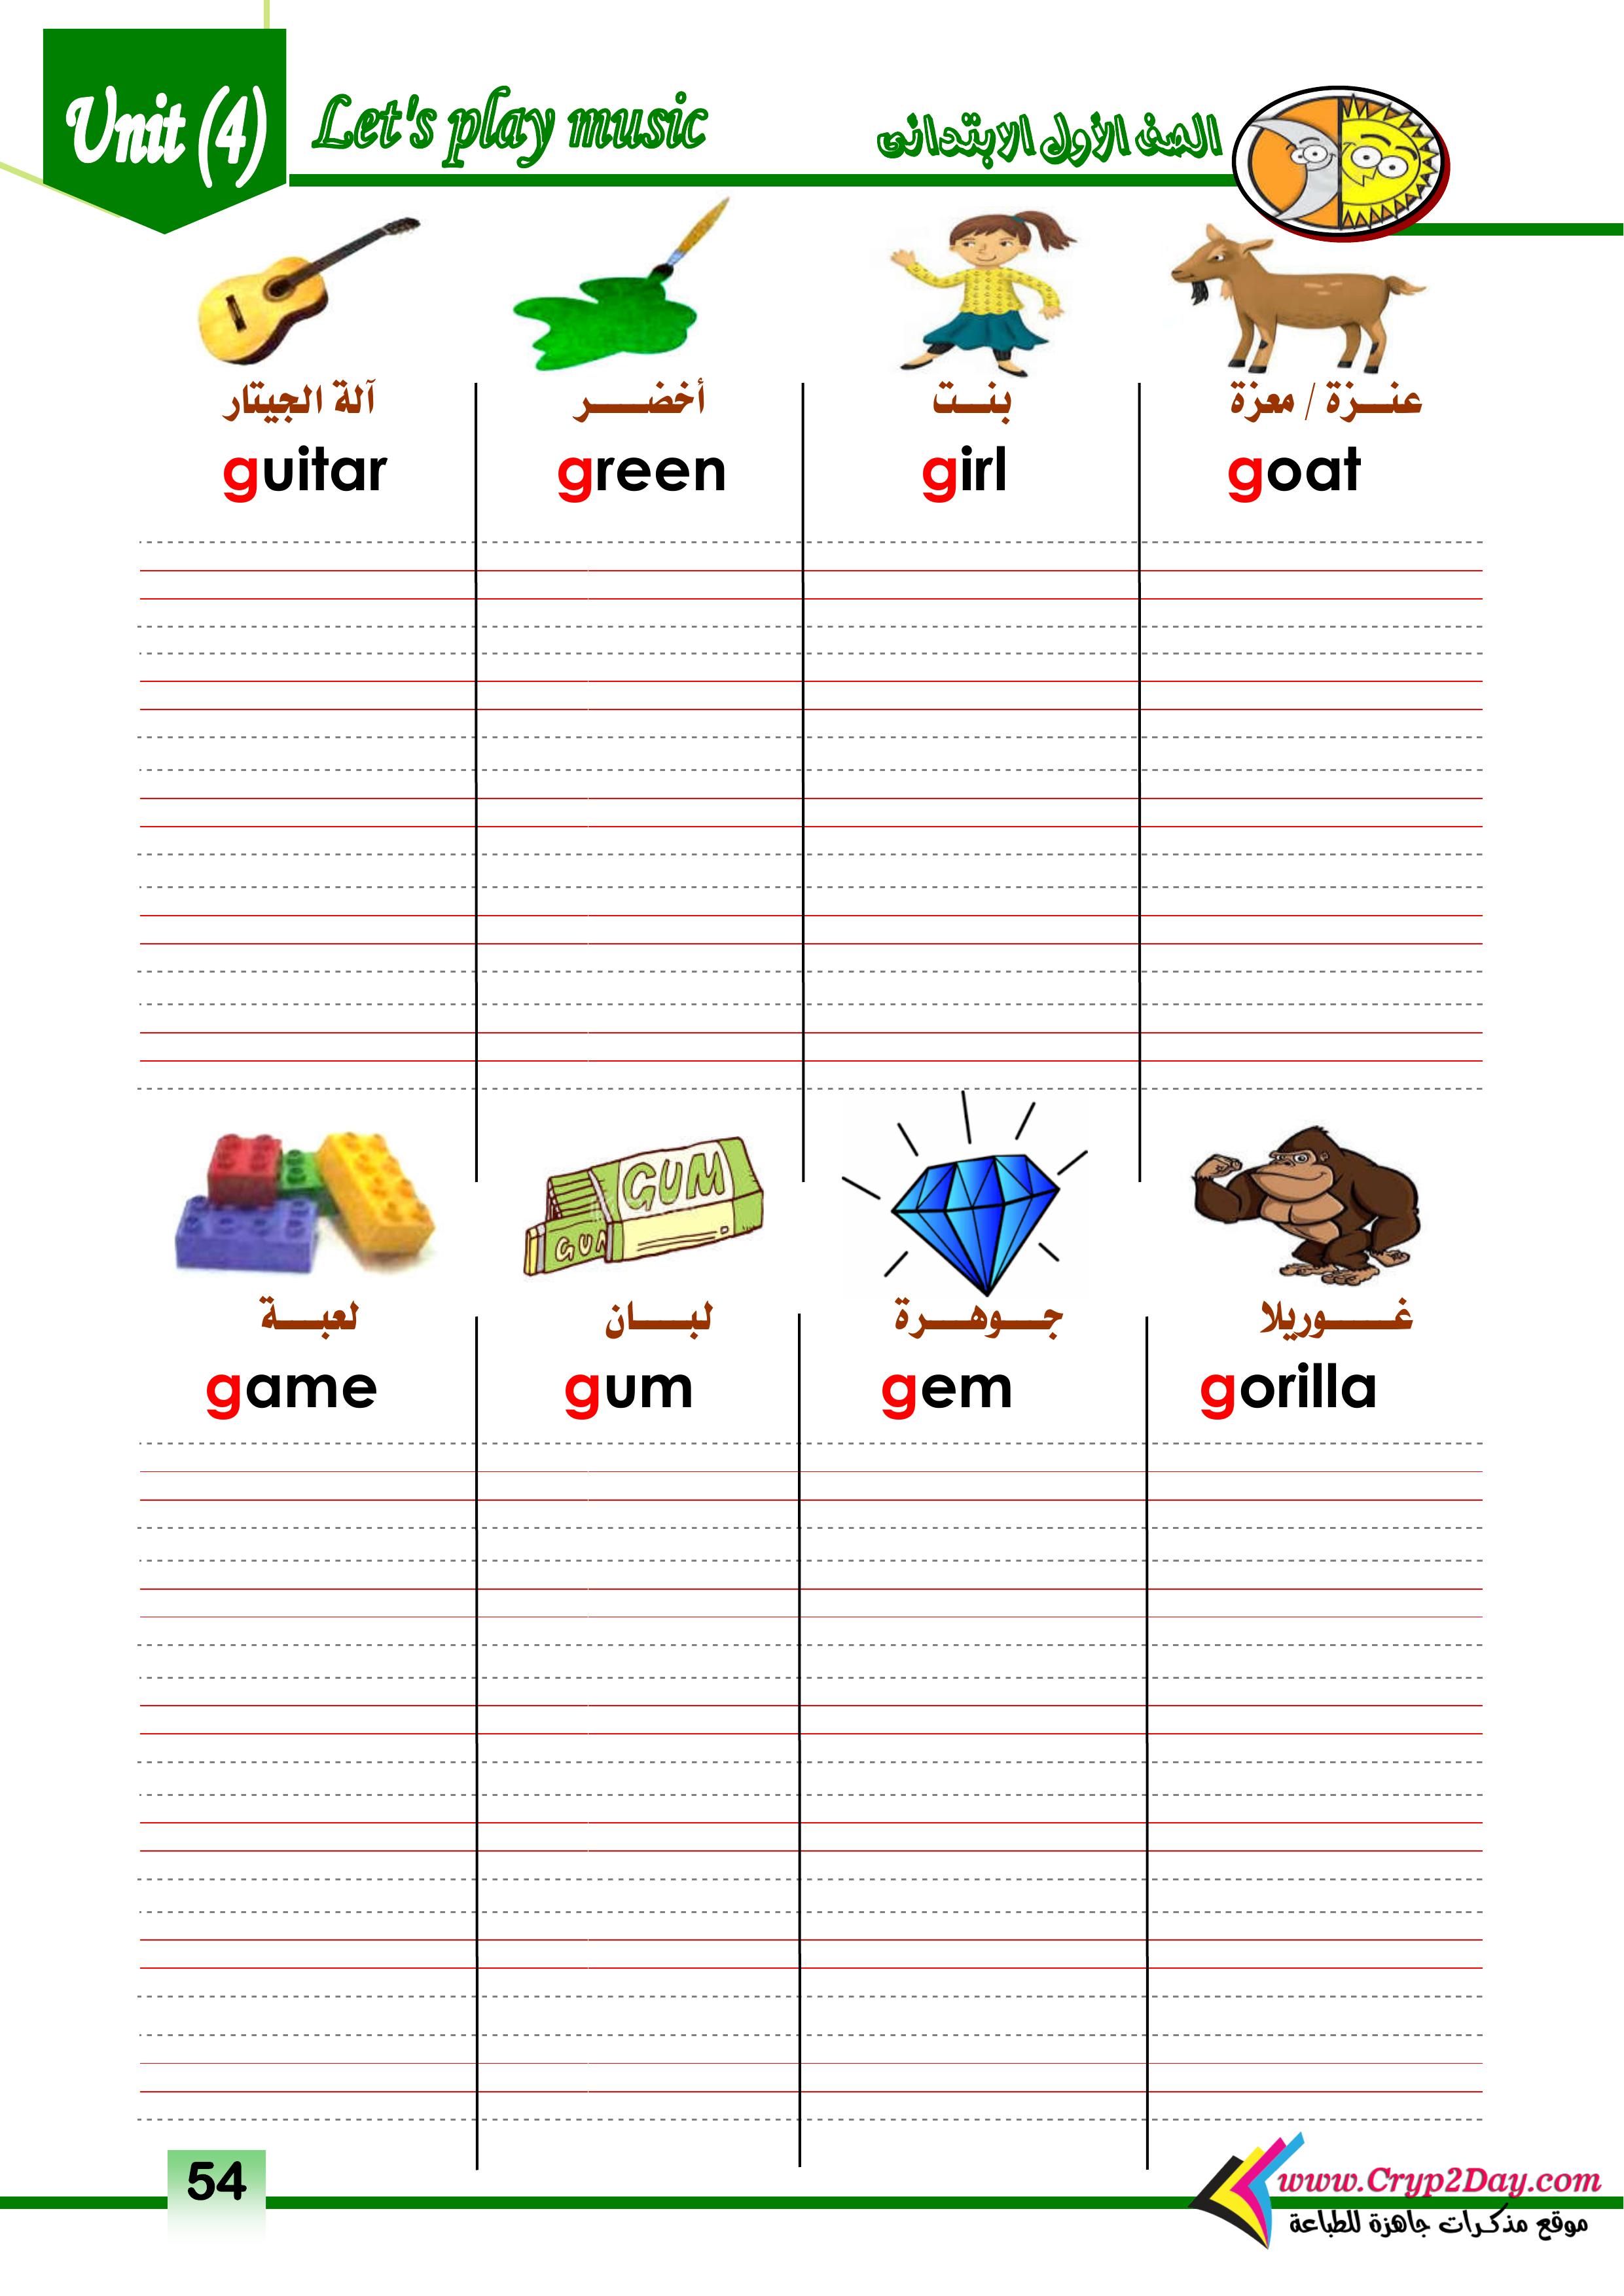 Unit (4)
Let's play music
الصف الأول الابتدائى
آلة الجيتار
أخضـــــر
بنـــت
عنـــزة / معزة
guitar
green
girl
goat
GUM
GUM
لعبـــــة
لبـــــان
جـــوهـــرة
غـــــوريلا
game
gum
gem
gorilla
54
www.Cryp2Day.com
موقع مذكرات جاهزة للطباعة